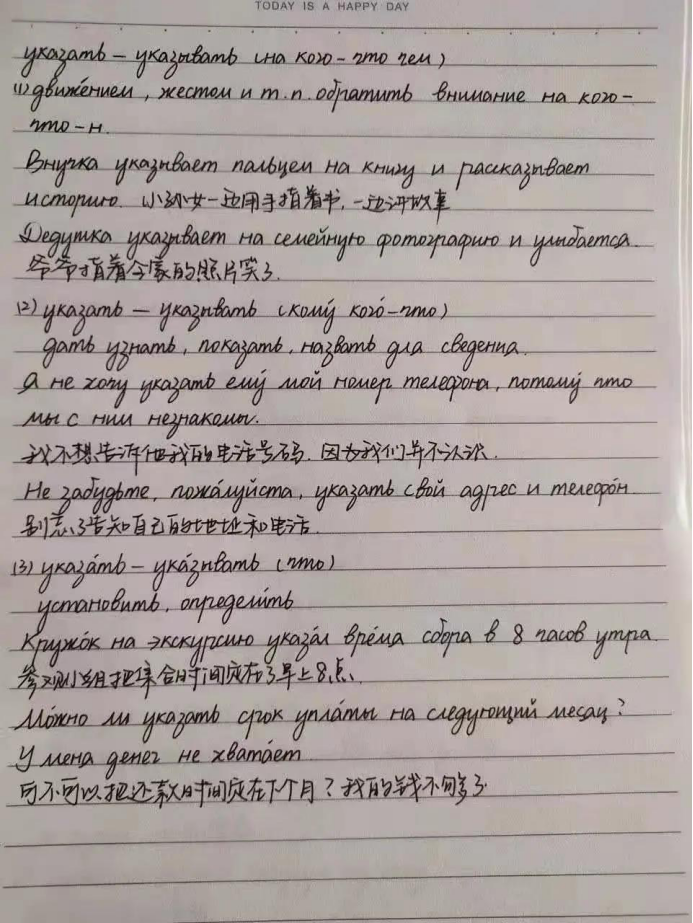 TODAY IS A HAPPY DAY
указать – указывать (на кого-что чем)
(1) движе́нием, жестом и т.п. обратить внимание на кого-
что-н.
Внучка указывает пальцем на книгу и рассказывает
историю. 小孙女一边用手指着书,一边讲故事
Дедушка указывает на семейную фотографию и улыбается.
爷爷指着全家的照片笑了.
(2) указать – указывать (кому́ кого́-что)
дать узнать, показать, назвать для сведения.
Я не хочу указать ему́ мой номер телефона, потому́ что
мы с ним незнакомы.
我不想告诉他我的电话号码,因为我们并不认识.
Не забудьте, пожа́луйста, указать свой адрес и телефо́н.
别忘了告知自己的地址和电话.
(3) указа́ть – ука́зывать (что)
установить, определи́ть
Кружо́к на экскурсию указа́л вре́мя сбора в 8 часов утра.
参观小组把集合时间定在了早上8点.
Мо́жно ли указать срок упла́ты на следующий месяц?
У меня денег не хвата́ет.
可不可以把还款时间定在下个月?我的钱不够了.